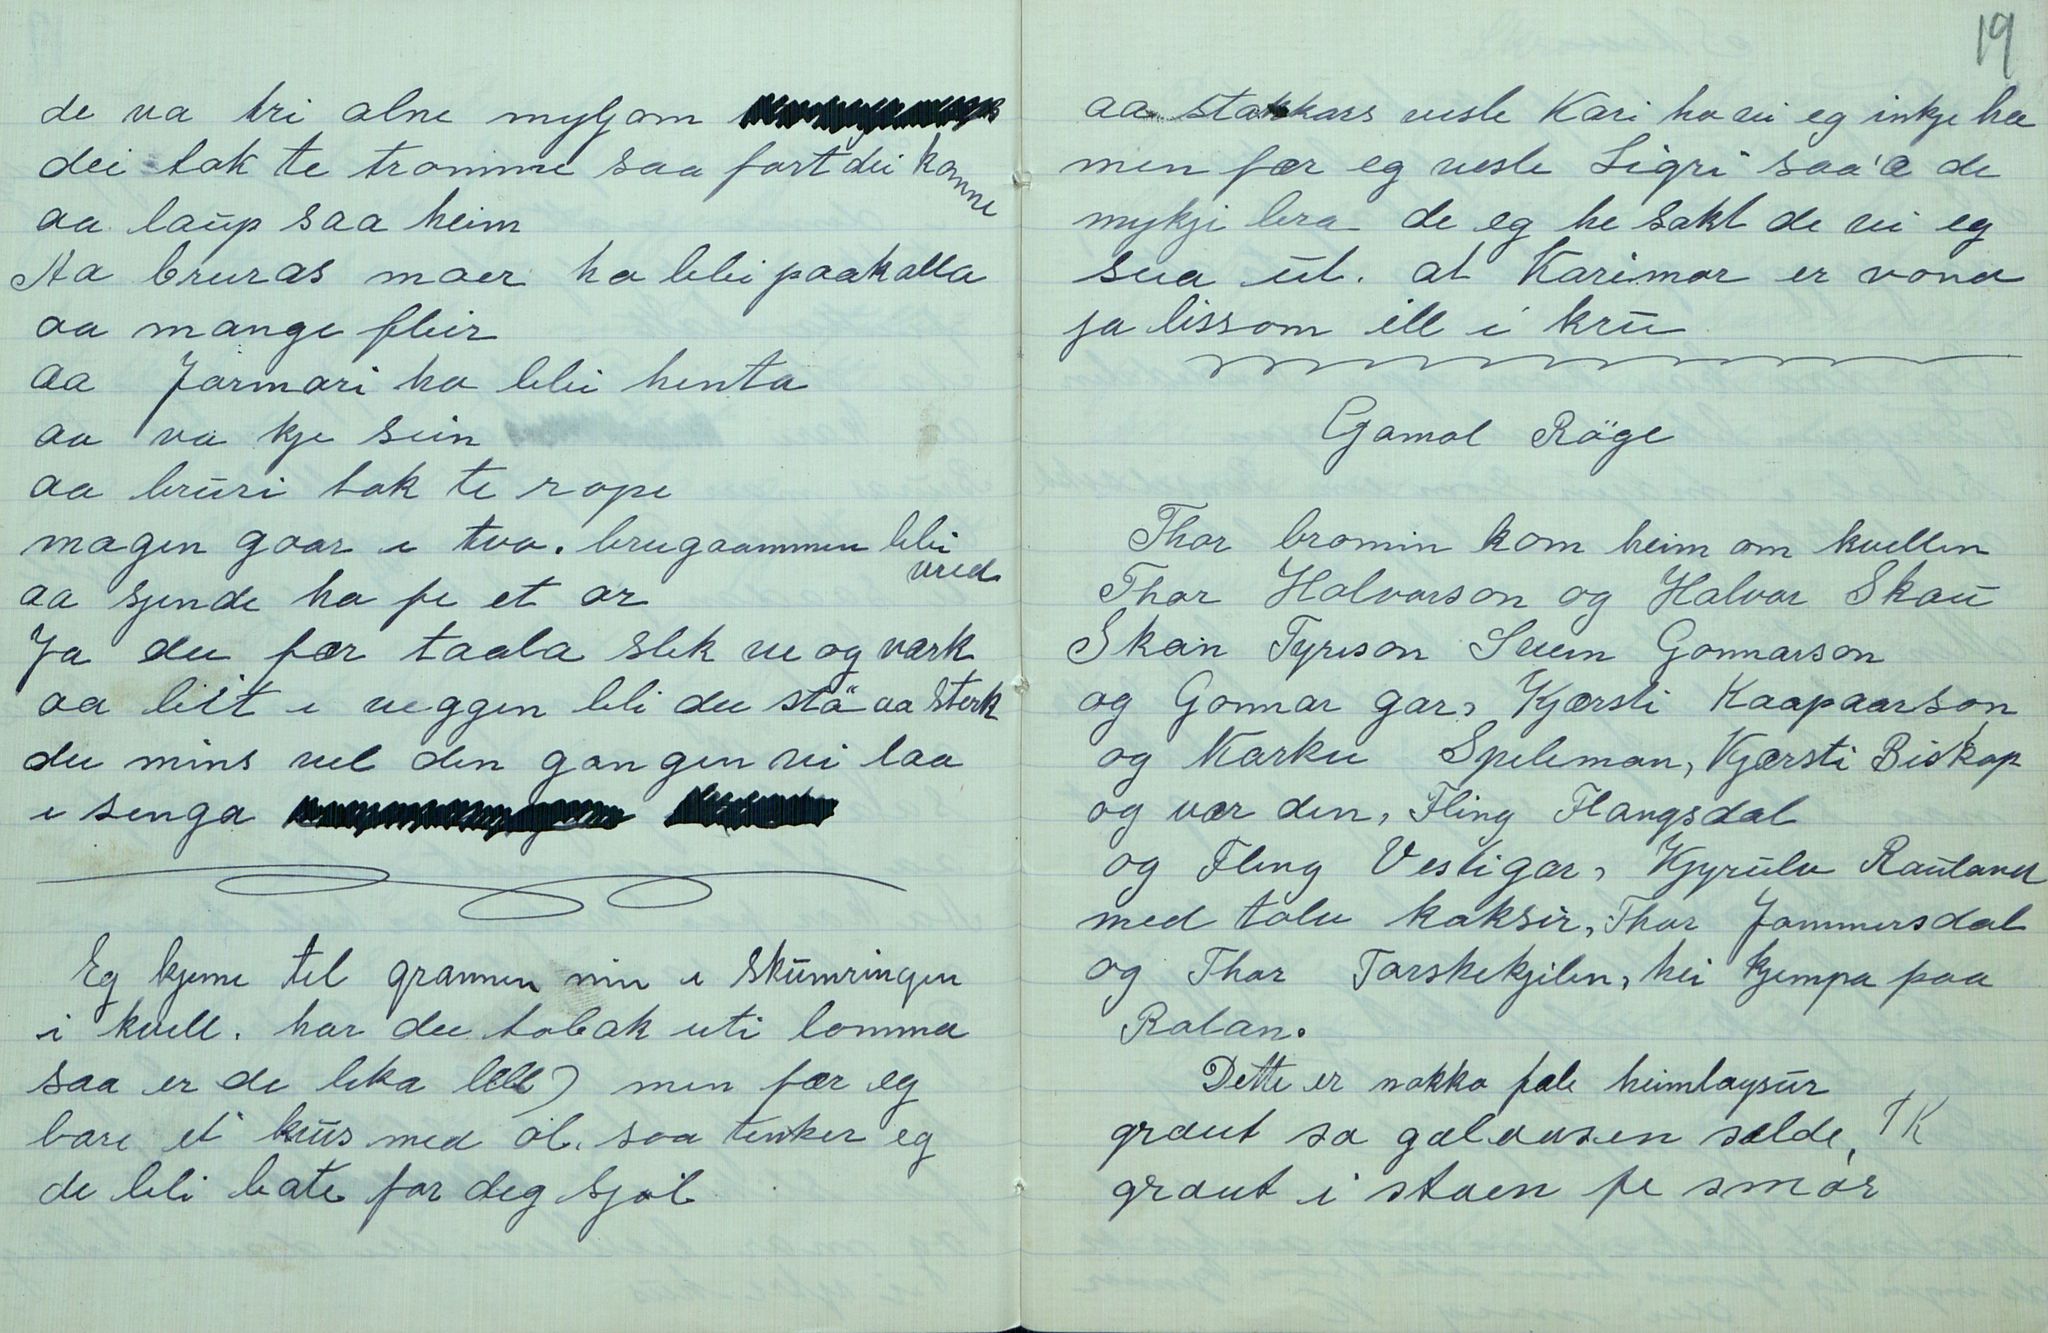 de va tri alne myljom
dei tok te tromme saa fort dei konne
aa laup saa heim
Aa bruras moer ho blei paakalla
aa mange fleir
aa Jormori ho blei henta
aa va kje sein
aa bruri tok te rope
magen gaar i tvo. brugaammen blei vreid
aa sjende ho fe et or
Ja du fær taala slik ve og værk
aa bitt i veggen bli du stö aa sterk
du mins vel den gongen vi laa
i senga
Eg kjeme til grannen min i skumringen
i kvell. har du tobak uti lomma
saa er de lika lell) men fær eg
bare et krus med öl. saa tenker eg
de bli bate for deg sjöl
19
aa stakkars vesle Kari ho vi eg inkje ha
men fær eg vesle Sigri saa'æ de
mykji bra de eg he sakt de vi eg
sva ut. at Karimor er vond
ja lissom ill i kru
Gamal Röge
Thor bromin kom heim om kvellen
Thor Halvorson og Halvor Skau
Skain Tyreson Svein Gonnarson
og Gonnar gar, Kjærsti Kaapaarson
og Karku Speleman, Kjærsti Biskop
og vær den, Fling Flangsdal
og Fleng Vestigar, Kjyrulv Rauland
med tolv koksir, Thor Jammersdal
og Thor Torskekjilen, hei kjempa paa
Rolan.
Dette er nokko fale heimlaysur
graut sa galausen sælde, TK
graut i stoen fe smör